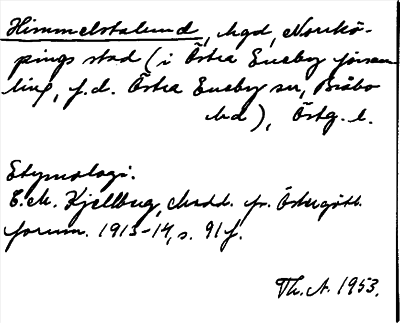 Himmelstalund, hgd, Norrkö-
pings stad (i Östra Eneby försam
ling, f.d. Östra Eneby sn, Bråbo
hd), Östg. l.
Etymologi.
C.M. Kjellberg, Medd. fr. Östergötl.
fornm. 1913-14, s. 91 f.
Th. A. 1953.